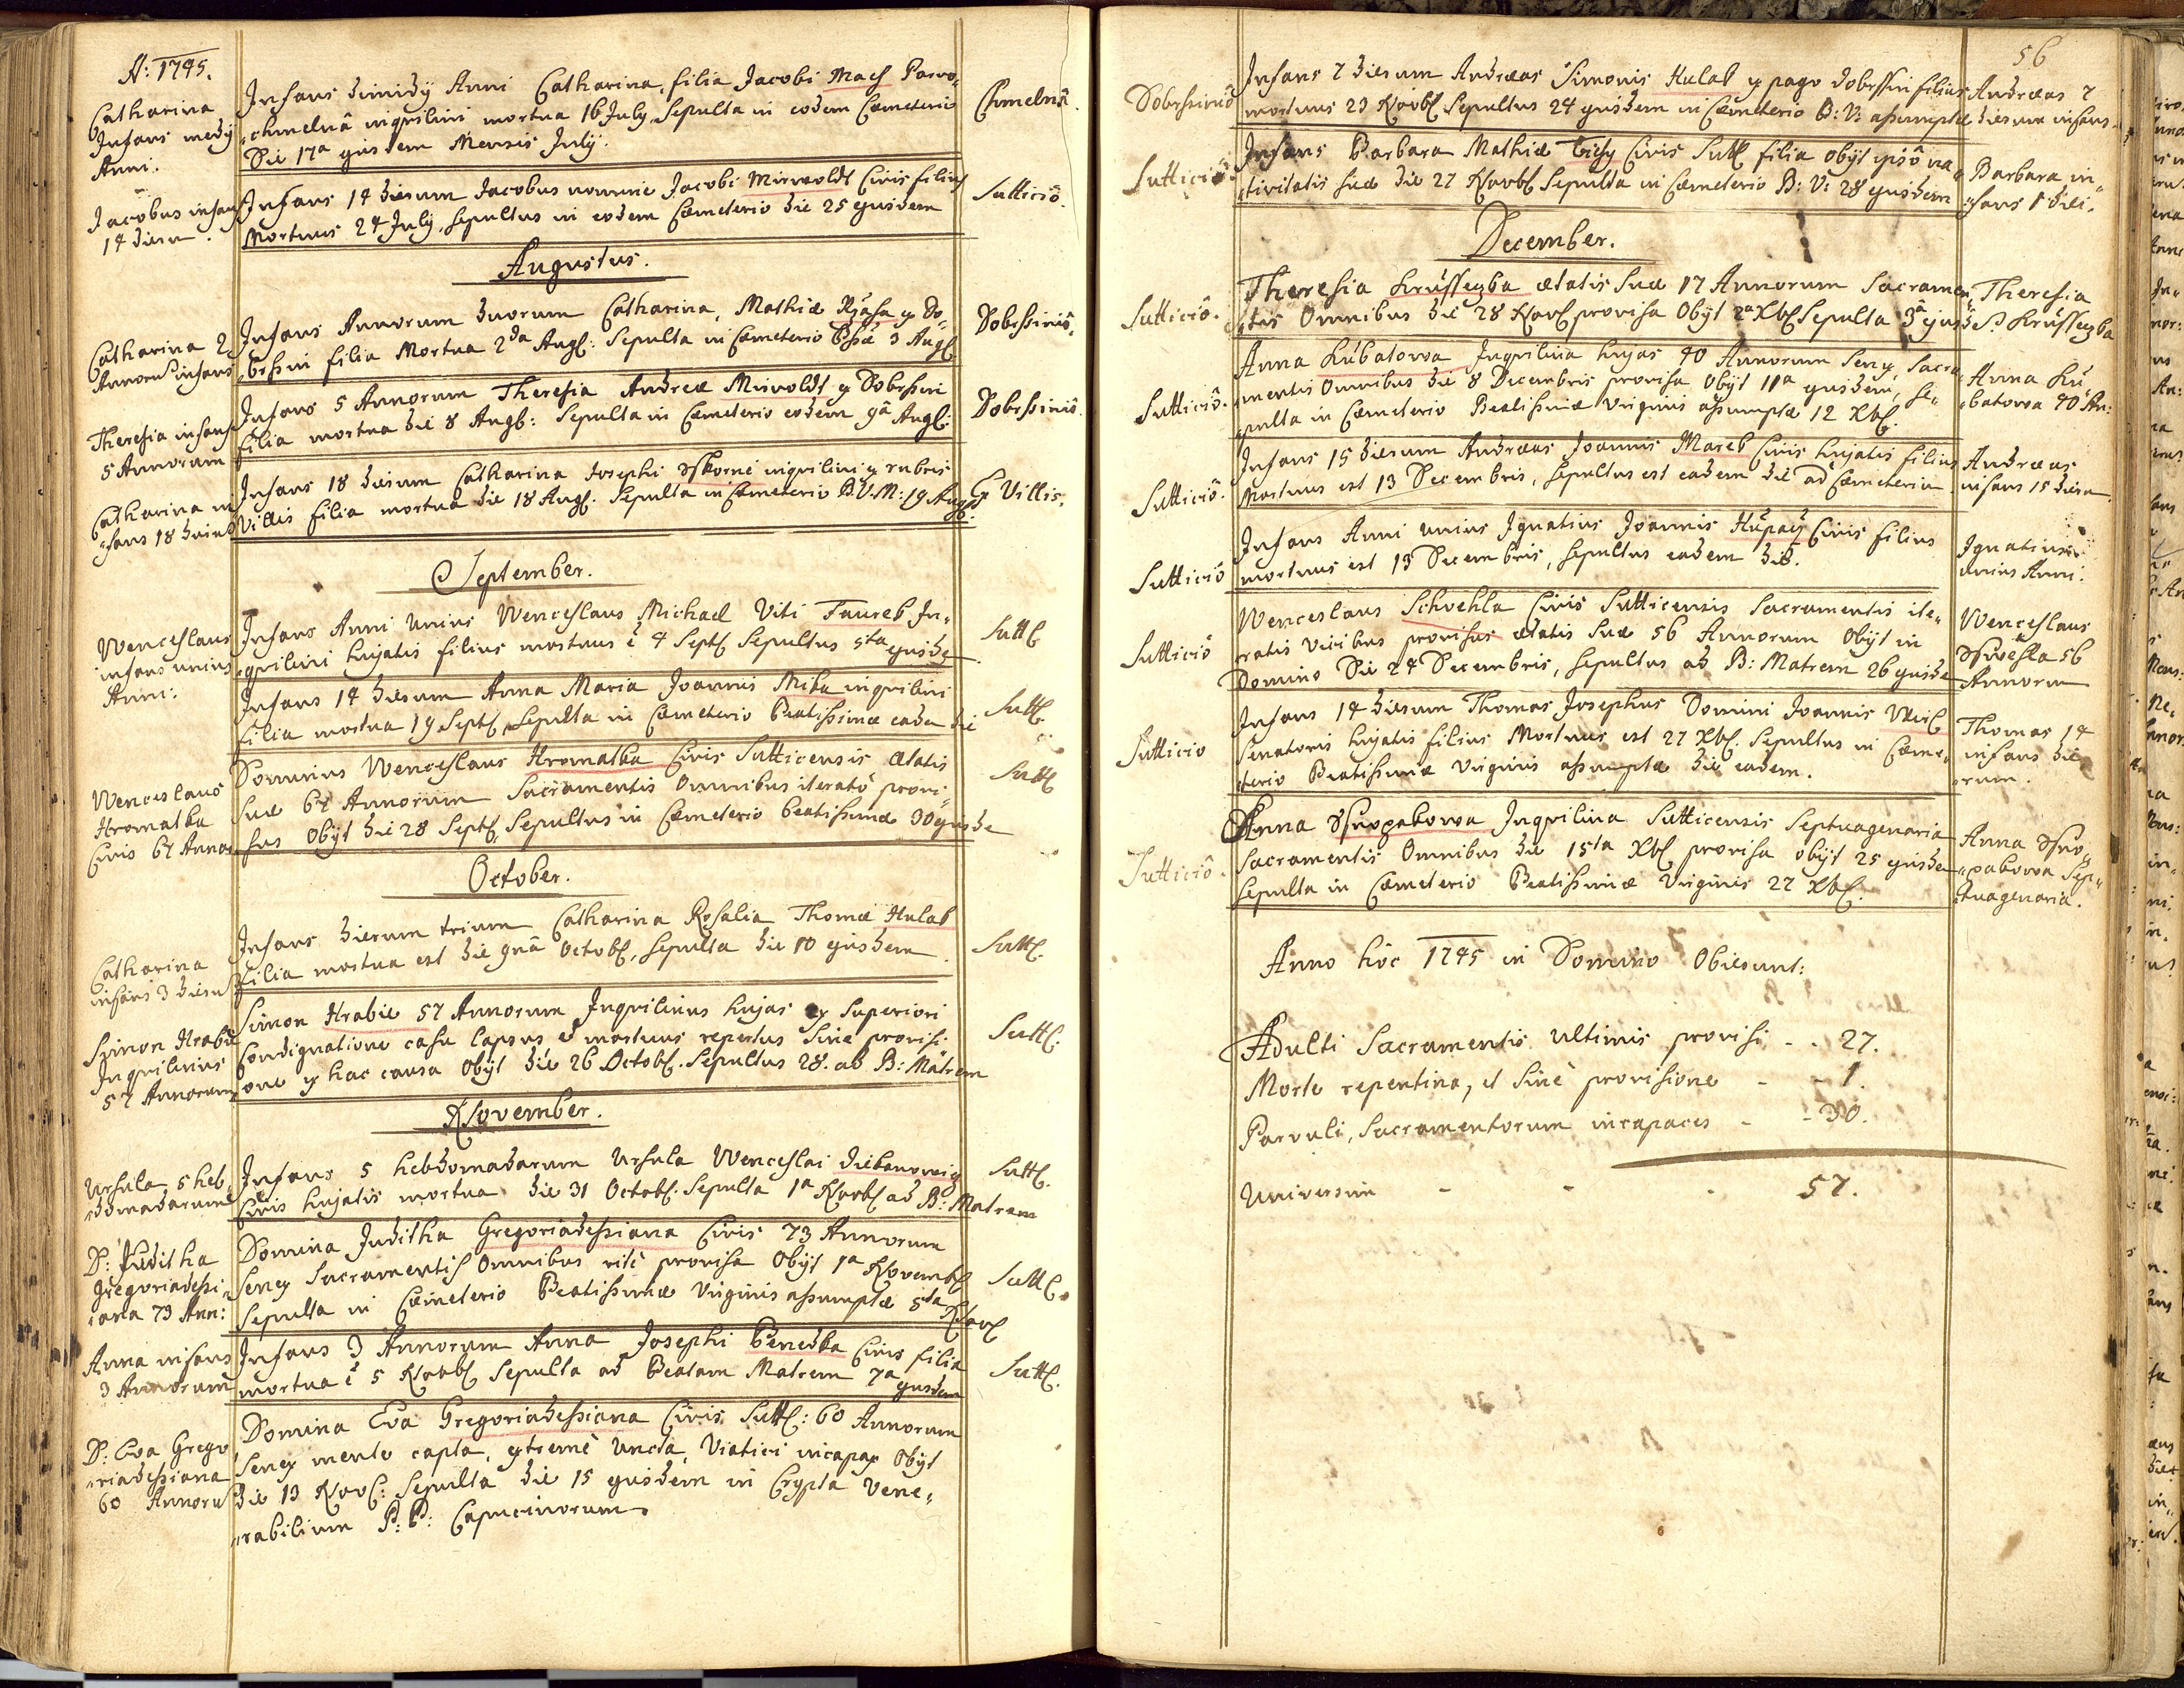 A: 1745.
Catharina
Infans medÿ
Anni.
Infans dimidÿ Anni Catharina, filia Jacobi Mach Parvo„
„chmelnâ inquilini mortua 16 July, Sepulta in eodem Cæmeterio
Die 17a ejusdem Mensis July.
Chmelnâ.
Jacobus infans
14 dieru.
Infans 14 dierum Jacobus nomine Jacobi Mirwoldt Civis filius
Mortuus 24 July, sepultus in eodem Cæmeterio die 25 ejusdem
Sutticiô.
Augustus.
Catharina 2
Annoru infans
Infans Annorum duorum Catharina, Mathiæ Rÿasa ex Do„
„brssin filia Mortua 2da Aug: Sepulta in Cæmeterio Bssæ 3 Aug
Dobrssiniô.
Theresia infans
5 Annorum
Infans 5 Annorum Theresia Andreæ Mirwoldt ex Dobrssin
filia mortua die 8 Augb: Sepulta in Cæmeterio eodem 9â Aug.
Dobrssiniô.
Catharina in
„fans 18 dierum
Infans 18 dierum Catharina Josephi Skorne inquilini ex rubris
Villis filia mortua die 18 Aug. Sepulta in Cæmeterio B.V.M: 19 Aug.
Ex Villis.
September.
Wenceslaus
infans unius
Anni:
Infans Anni unius Wenceslaus Michael Viti Taureb In„
„quilini hujatis filius mortuus ê 4 Sept Sepultus 5ta ejusde
Sutt
Infans 14 dierum Anna Maria Joannis Mika inquilini
filia mortua 19 Sept, Sepulta in Cæmeterio Beatissimæ eade die
Sutt
Wenceslaus
Hromatka
Civis 67 Anno
Dominus Wenceslaus Hromatka Civis Sutticensis ætatis
suæ 67 Annorum Sacramentis Omnibus iteratò provi„
sus Obÿt die 28 Sept. Sepultus in Cæmeterio beatissimæ 30 ejusde
Sutt
October.
Catharina
infans 3 dieru
Infans dierum trium Catharina Rosalia Thomæ Hulab
filia mortua est die 9nâ Octob, Sepulta die 10 ejusdem.
Sutt.
Simon Hrabie
Inquilinus
57 Annorum
Simon Hrabie 57 Annorum Inquilinus hujas ex Superiori
Condignatione casu lapsus et mortuus repertus sine provisi„
one ex hac causa Obÿt die 26 Octob. Sepultus 28. ad B: Matrem
Sutt.
November.
Ursula 5 heb„
„domadarum
Infans 5 hebdomadarum Ursula Wenceslai diebanovie
Civis hujatis mortua die 31 Octob. Sepulta 1a Novb ad B: Matrem
Sutt.
D: Juditha
Gregoriadessi„
„ana 73 Ann:
Domina Juditha Gregoriadessiana Civis 73 Annorum
Senex Sacramentis Omnibus ritè provisa Obÿt 1a Novemb
Sepulta in Cæmeterio Beatissimæ Virginis assumptæ 5ta
Nov
Sutt.
Anna infans
3 Annorum
Infans 3 Annorum Anna Josephi Benedka Civis filia
mortua ê 5 Novb Sepulta ad Beatam Matrem 7a
ejusdem
Sutt.
D: Eva Grego
„riadessiana
60 Annoru
Domina Eva Gregoriadessiana Civis Sutt: 60 Annorum
Senex mente capta, extremè uncta, Viatici incapax Obÿt
die 13 Nov: Sepulta die 15 ejusdem in Crypta Vene„
„rabilium P: P: Capucinorum.
56
Dobrssiniô
Infans 7 dierum Andreas Simonis Hulab ex pago Dobrssin filius
mortuus 23 Novb Sepultus 24 ejusdem in Cæmeterio B: V: assumptæ
Andreas 7
dierum infans.
Sutticiô.
Infans Barbara Mathiæ Tichy Civis Sutt filia obÿt ipsô na„
„tivitatis suæ die 27 Novb Sepulta in Cæmeterio B: V: 28 ejusdem
Barbara in„
„fans 1 diei.
December.
Sutticiô.
Theresia Krússegba ætatis suæ 17 Annorum Sacramen„
„tis Omnibus die 28 Nov provisa Obÿt 2a Xb Sepulta 3â ejusd
Theresia
Krússegba
Sutticiô.
Anna Kubatowa Inquilina hujas 70 Annorum Senex, Sacra„
„mentis Omnibus die 8 Decembris provisa Obÿt 11a ejusdem, Se„
„pulta in Cæmeterio Beatissimæ Virginis assumptæ 12 Xb.
Anna Ku„
„batowa 70 An:
Sutticiô.
Infans 15 dierum Andreas Joannis Mareb Civis hujatis filius
Mortuus est 13 Decembris, Sepultus est eadem die ad Cæmeteriu
Andreas
infans 15 dieru
Sutticiô
Infans Anni unius Ignatius Joannis Hupaÿ Civis filius
mortuus est 13 Decembris, sepultus eadem die.
Ignatius
unius Anni.
Sutticiô
Wenceslaus Schvehla Civis Sutticensis Sacramentis ite„
„ratis vicibus provisus ætatis suæ 56 Annorum Obÿt in
Domino Die 24 Decembris, sepultus ad B: Matrem 26 ejusde
Wenceslaus
Sswehla 56
Annoru
Sutticio
Infans 14 dierum Thomas Josephus Domini Joannis
Senatoris hujatis filius Mortuus est 27 Xb. Sepultus in Cæme„
„terio Beatissimæ Virginis assumptæ die eadem.
Thomas 14
infans die
„rum.
Sutticiô.
Anna Ssropakowa Inquilina Sutticensis Septuagenaria
Sacramentis Omnibus die 15ta Xb provisa obÿt 25 ejusde
Sepulta in Cæmeterio Beatissimæ Virginis 27 Xb.
Anna Ssro„
„pakowa Sep„
„tuagenaria.
Anno hôc 1745 in Domino Obierunt:
Adulti Sacramentis ultimis provisi - - 27.
Morte repentina, et Sinè provisione - - 1.
Parvuli, Sacramentorum incapaces - - 30.
Universim - - - 57.